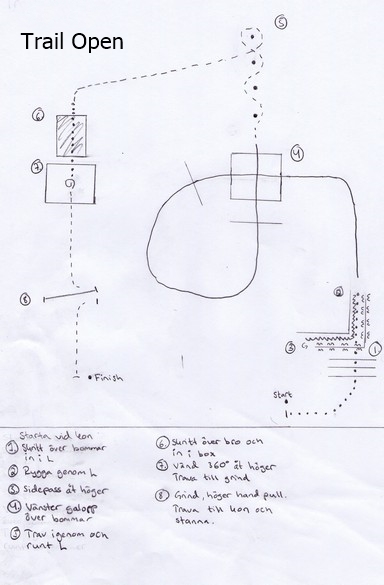 Trail Open
5
6
4
7
2
8
3
G
1
Start
Finish
Starta vid kon
1 Skritt över bommar
in i L
2 Rygga genom L
3 Sidepass åt höger
4. Vänster galopp
över bommar
5 Trav igenom och
runt L
6 Skritt över bro och
in i box
7. Vänd 360° åt höger
Trava till grind
8 Grind, höger hand pull.
Trava till kon och
stanna.